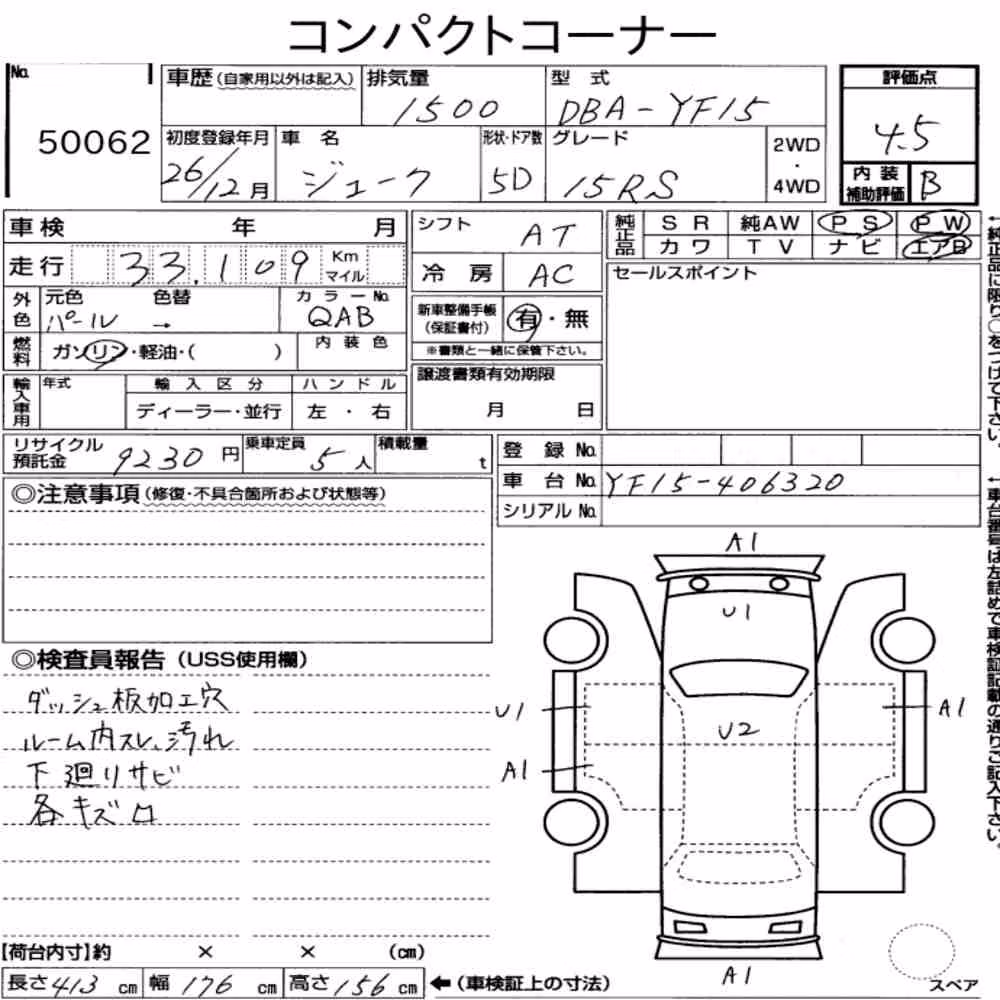 コンパクトコーナー
No.
50062
車歴(自家用以外は記入)
排気量
1500
型式
DBA-YF15
評価点
4.5
初度登録年月
26/12月
車名
ジューク
形状・ドア数
5D
グレード
15RS
2WD
・
4WD
内装
補助評価
B
車検 年 月
走行 33,109 Km マイル
シフト AT
冷房 AC
純正品
SR 純AW PS PW
カワ TV ナビ エアB
セールスポイント
外色
元色 色替
パール →
カラーNo.
QAB
燃料
ガソリン・軽油・( )
内装色
新車整備手帳
(保証書付)
有・無
※書類と一緒に保管下さい。
輸入車用
年式
輸入区分
ディーラー・並行
ハンドル
左・右
譲渡書類有効期限
月 日
リサイクル
預託金
9230円
乗車定員
5人
積載量
t
登録No.
車台No. YF15-406320
シリアルNo.
◎注意事項(修復・不具合箇所および状態等)
◎検査員報告(USS使用欄)
ダッシュ板加工穴
ルーム内スレ、汚れ
下廻りサビ
各キズ口
A1
U1
U1
U2
A1
A1
A1
【荷台内寸】約 × × (cm)
長さ413cm 幅176cm 高さ156cm ←(車検証上の寸法)
スペア
←純正品に限り○をつけて下さい。
←車台番号は左詰めで車検証記載の通りご記入下さい。